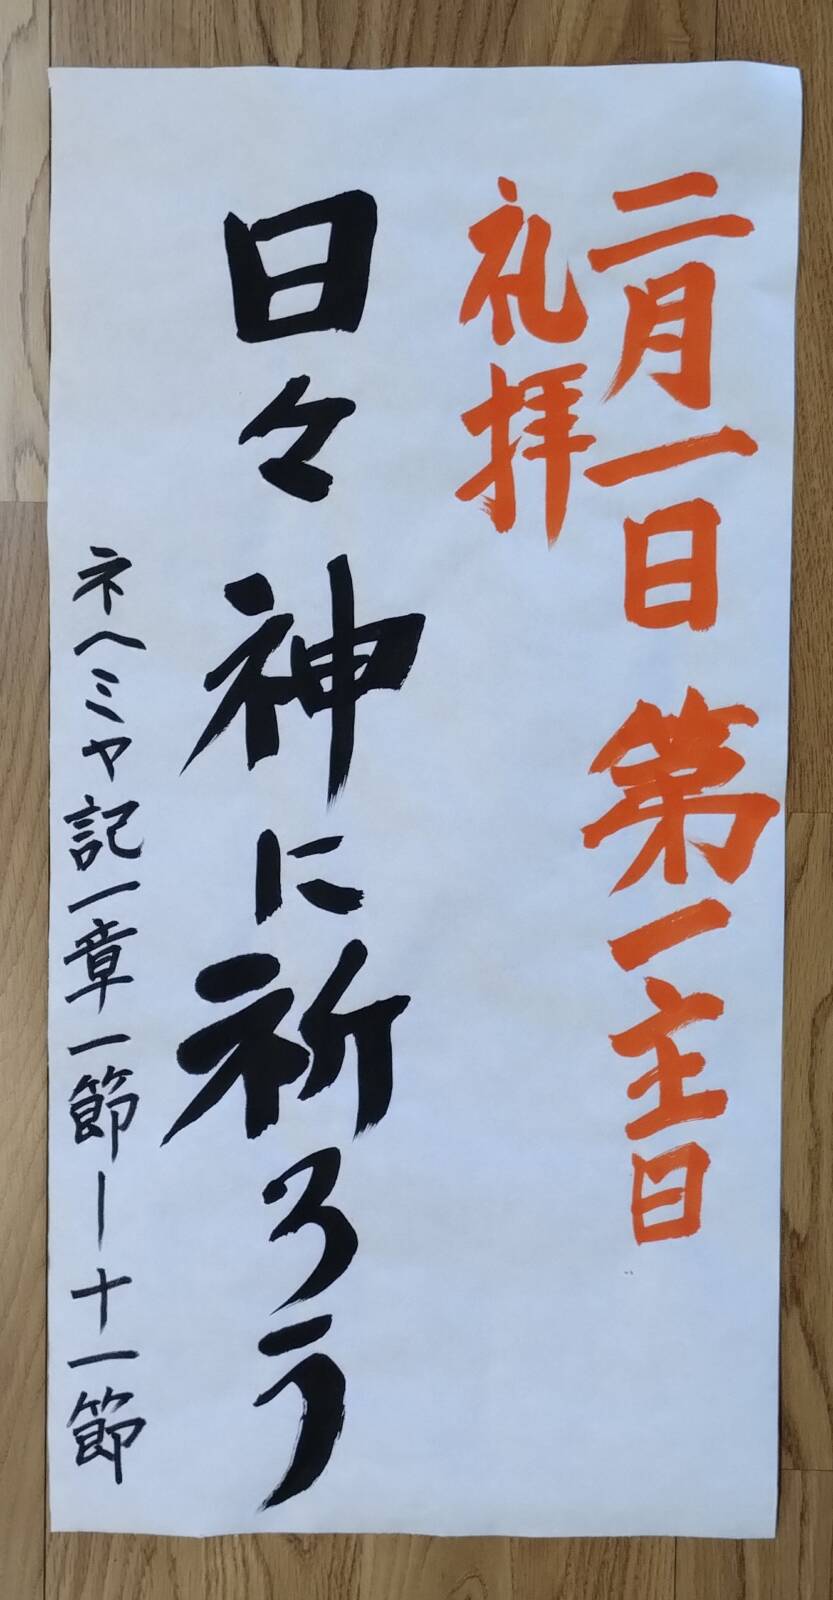 二月一日 第一主日
礼拝
日々神に祈ろう
ネヘミヤ記一章一節ー十一節